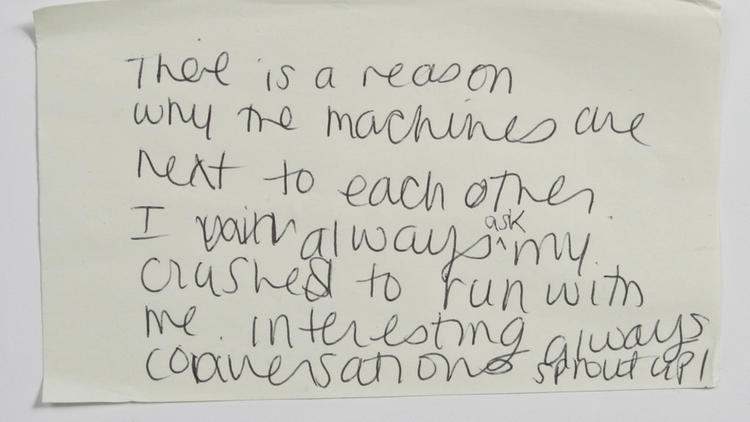 There is a reason
why the machines are
next to each other.
I always ask my
crushes to run with
me. interesting always
conversations sprout up!